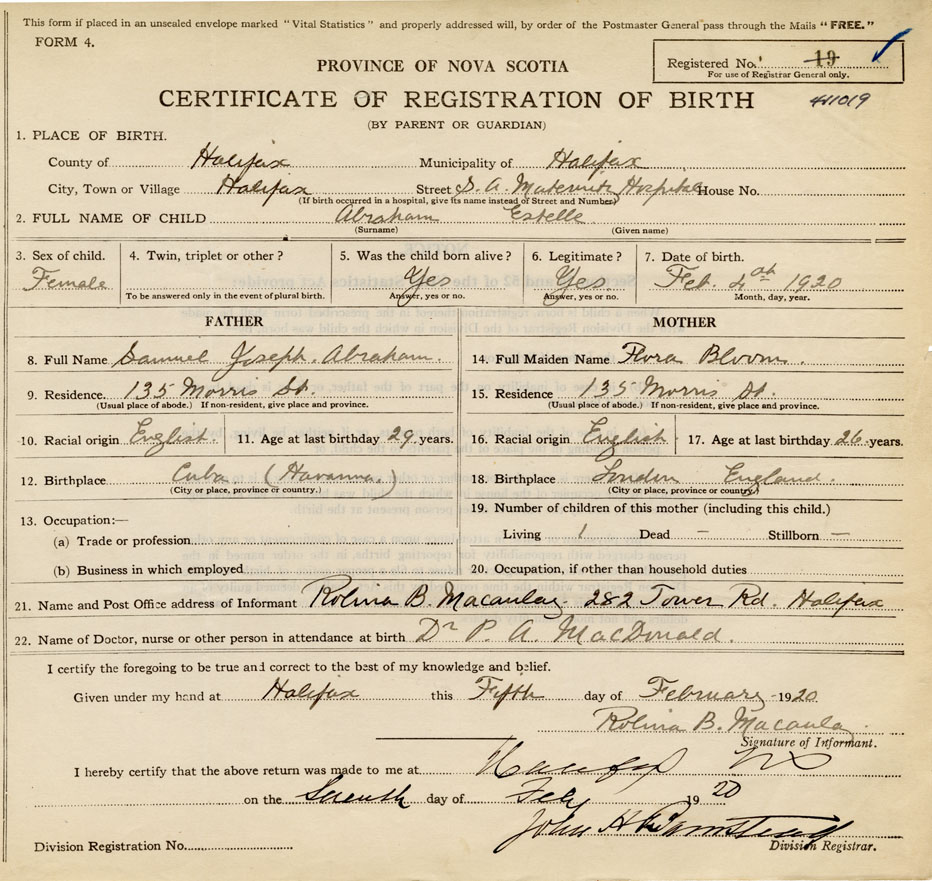 This form if placed in an unsealed envelope marked "Vital Statistics" and properly addressed will, by order of the Postmaster General pass through the Mails "FREE."
FORM 4.
Registered No. 19
For use of Registrar General only.
PROVINCE OF NOVA SCOTIA
CERTIFICATE OF REGISTRATION OF BIRTH
(BY PARENT OR GUARDIAN)
1. PLACE OF BIRTH.
County of Halifax Municipality of Halifax
City, Town or Village Halifax Street S. A. Maternity Hospital House No.
(If birth occurred in a hospital, give its name instead of Street and Number)
2. FULL NAME OF CHILD Abraham Estelle
(Surname) (Given name)
3. Sex of child. 4. Twin, triplet or other? 5. Was the child born alive? 6. Legitimate? 7. Date of birth.
Female Yes Yes Feb. 4th 1920
To be answered only in the event of plural birth. Answer, yes or no. Answer, yes or no. Month, day, year.
FATHER MOTHER
8. Full Name Samuel Joseph Abraham. 14. Full Maiden Name Flora Bloom.
9. Residence. 135 Morris St. 15. Residence 135 Morris St.
(Usual place of abode.) If non-resident, give place and province. (Usual place of abode.) If non-resident, give place and province.
10. Racial origin English. 11. Age at last birthday 29 years. 16. Racial origin English 17. Age at last birthday 26 years.
12. Birthplace Cuba (Havanna.) 18. Birthplace London England.
(City or place, province or country.) (City or place, province or country)
13. Occupation:— 19. Number of children of this mother (including this child.)
(a) Trade or profession Living 1 Dead — Stillborn —
(b) Business in which employed 20. Occupation, if other than household duties
21. Name and Post Office address of Informant Rolina B. Macaulay 282 Tower Rd. Halifax
22. Name of Doctor, nurse or other person in attendance at birth Dr P. A. MacDonald.
I certify the foregoing to be true and correct to the best of my knowledge and belief.
Given under my hand at Halifax this Fifth day of February 1920
Rolina B. Macaulay
Signature of Informant.
I hereby certify that the above return was made to me at Halifax NS
on the Seventh day of Feby 1920
John H
Division Registration No. Division Registrar.